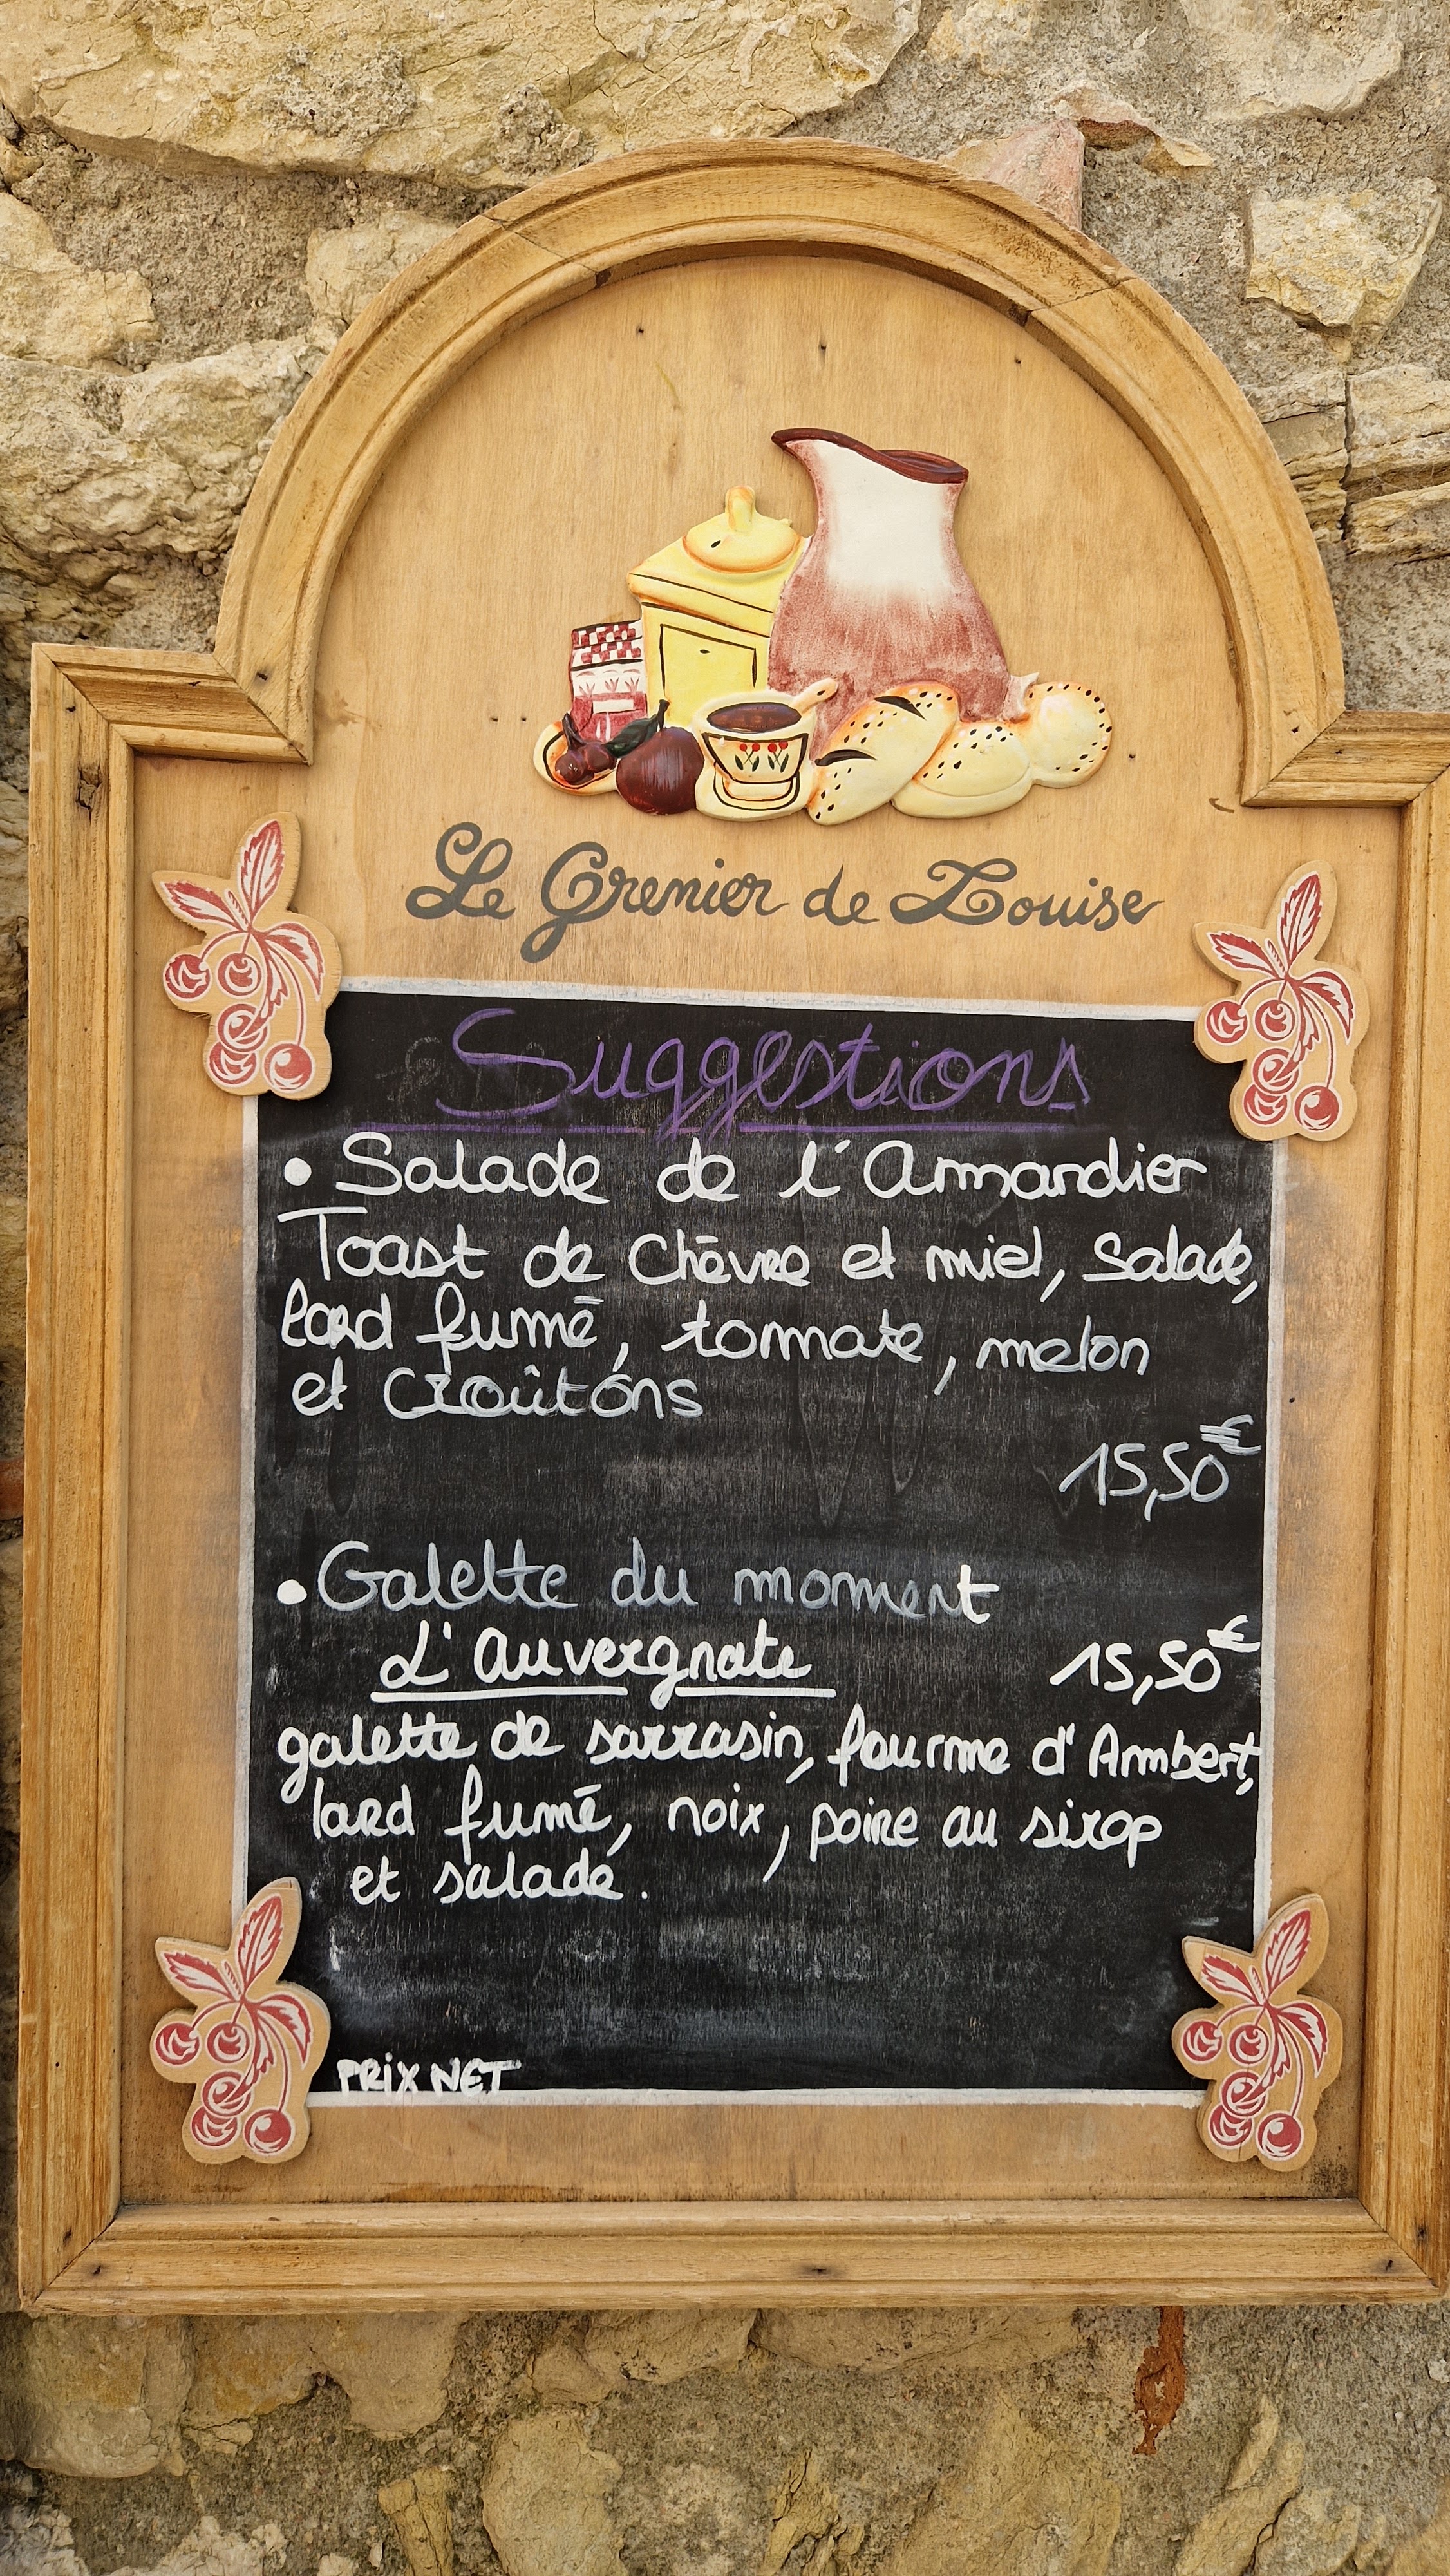 Le Grenier de Louise
Suggestions
• Salade de l'Amandier
Toast de Chèvre et miel, Salade,
lard fumé, tomate, melon
et Croûtons
15,50€
• Galette du moment
L'Auvergnate 15,50€
galette de sarrasin, fourme d'Ambert,
lard fumé, noix, poire au sirop
et salade.
PRIX NET